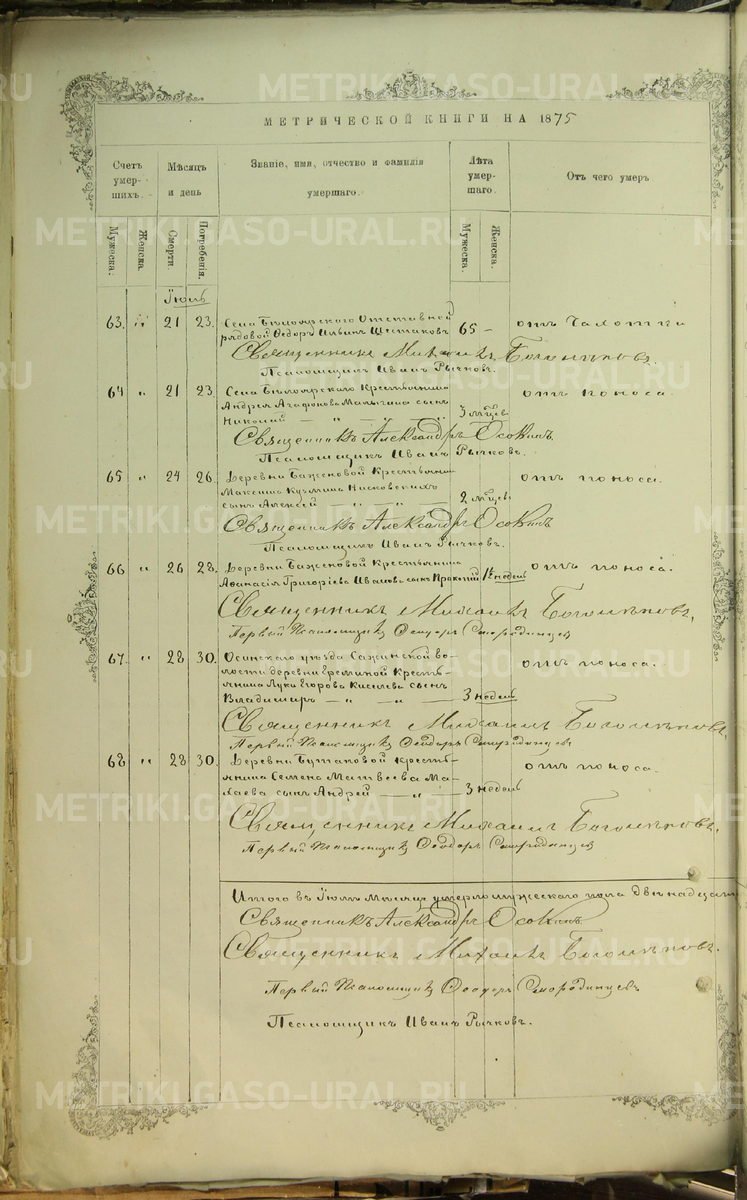 МЕТРИЧЕСКОЙ КНИГИ НА 1875
Счетъ умер-шихъ.
Мѣсяцъ и день
Званіе, имя, отчество и фамилія умершаго.
Лѣта умер-шаго.
Отъ чего умеръ
Мужеска.
Женска.
Смерти.
Погребенія.
Мужеска.
Женска.
Іюль
63. " 21 23. Села Бѣлоярскаго Отставной
рядовой Ѳедоръ Ильинъ Шестаковъ 65 – отъ
Священникъ Михаилъ
Псаломщикъ Иванъ Рычковъ.
64 " 21 23. Села Бѣлоярскаго Крестьянина
Андрея Агафонова Малыгина сынъ
Николай – " – " – " 3 мѣсяц отъ поноса.
Священникъ Александръ Осокинъ
Псаломщикъ Иванъ Рычковъ.
65 " 24 26. Деревни Баженовой Крестьянина
Максима Кузмина
сынъ Алексѣй – " – " – " – 2 мѣсяц отъ поноса.
Священникъ Александръ Осокинъ
Псаломщикъ Иванъ Рычковъ.
66 " 26 28. Деревни Баженовой Крестьянина
Афанасія Григоріева Иванова сынъ Прокопій 1½ недель отъ поноса.
Священникъ Михаилъ
Первый Псаломщикъ Ѳеодоръ Смородинцевъ
67. " 28 30. Осинскаго уѣзда Сажинской во-
лости деревни Ереминой Кресть-
янина Луки Егорова Киселева сынъ
Владимиръ – " – " – 3 недель отъ поноса.
Священникъ Михаилъ
Первый Псаломщикъ Ѳеодоръ Смородинцевъ
68 " 28 30. Деревни Бутаковой Кресть-
янина Семена Матвеева Ма-
каева сынъ Андрей – " – 3 недель отъ поноса.
Священникъ Михаилъ
Первый Псаломщикъ Ѳеодоръ Смородинцевъ
Итого въ Іюлѣ мѣсяцѣ умерло мужескаго пола двѣнадцать
Священникъ Александръ Осокинъ
Священникъ Михаилъ
Первый Псаломщикъ Ѳеодоръ Смородинцевъ
Псаломщикъ Иванъ Рычковъ.
METRIKI.GASO-URAL.RU